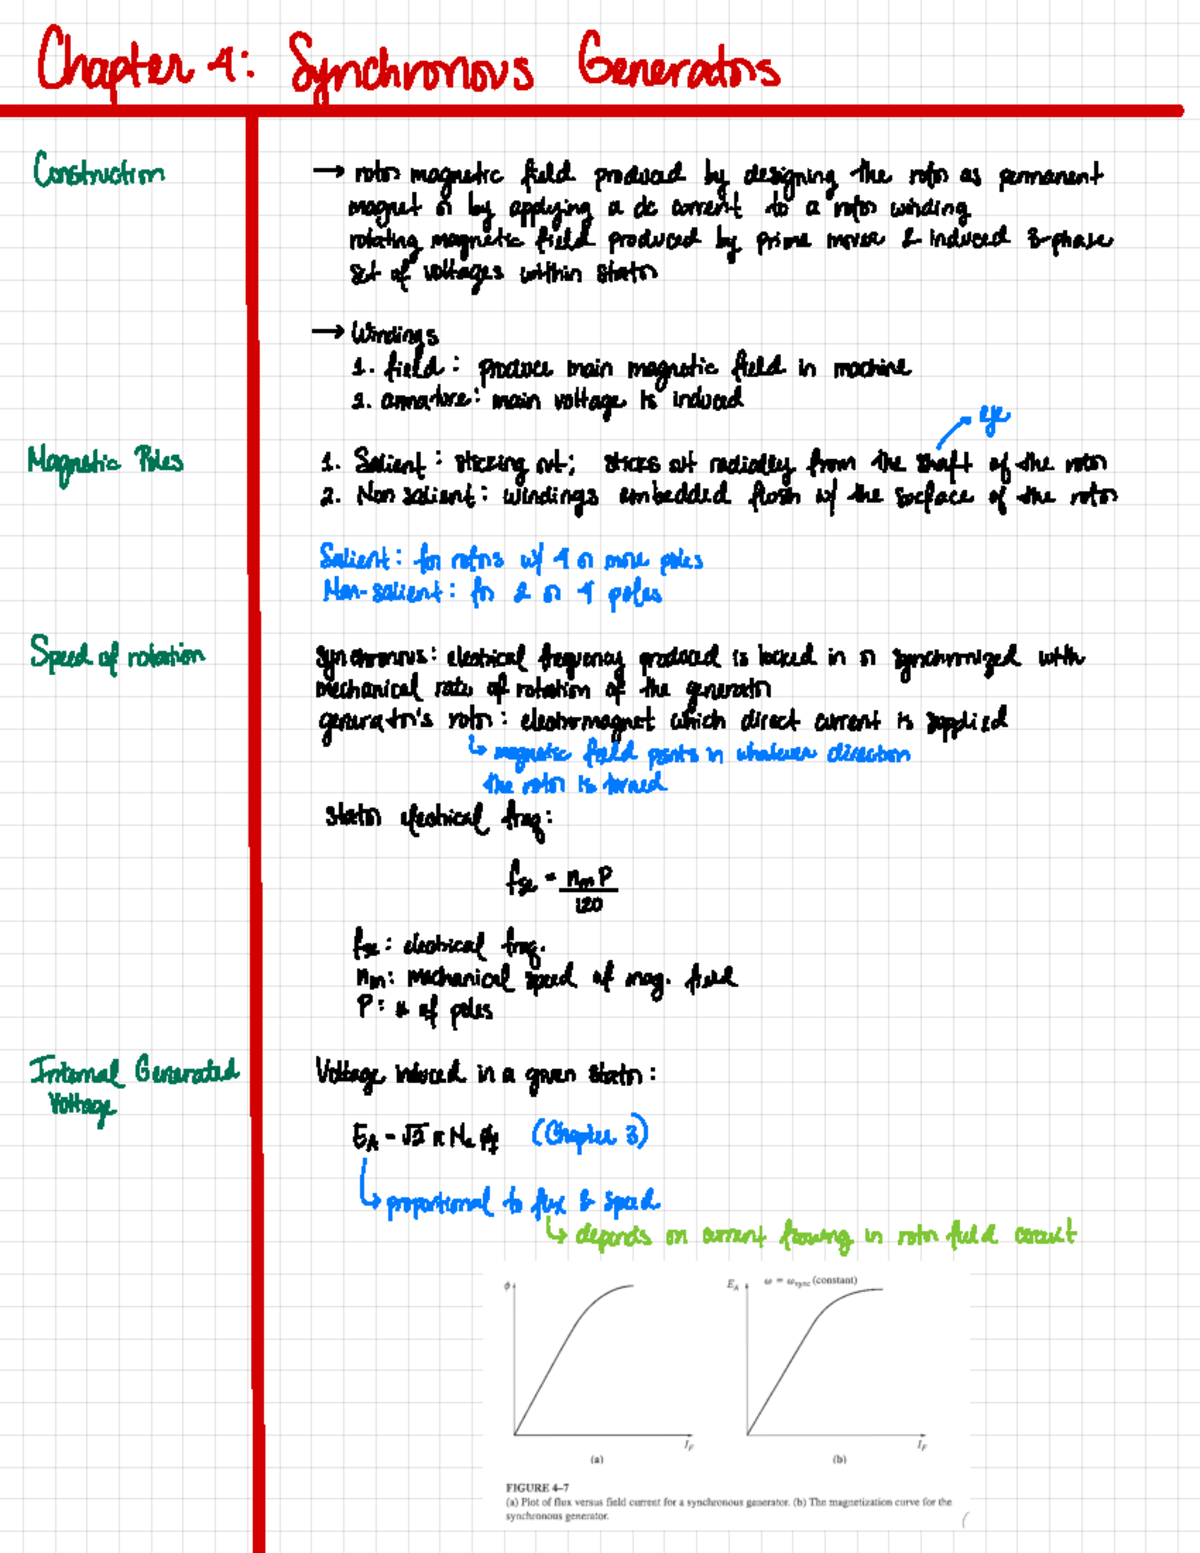 Chapter 4: Synchronous Generators
Construction
→ rotor magnetic field produced by designing the rotor as permanent
magnet or by applying a dc current to a rotor winding
rotating magnetic field produced by prime mover & induced 3-phase
set of voltages within stator
→ Windings
1. field: produce main magnetic field in machine
2. armature: main voltage is induced
eje
Magnetic Poles
1. Salient: sticking out; sticks out radially from the shaft of the rotor
2. Non salient: windings embedded flush w/ the surface of the rotor
Salient: for rotors w/ 4 or more poles
Non-salient: for 2 or 4 poles
Speed of rotation
Synchronous: electrical frequency produced is locked in or synchronized with
mechanical rate of rotation of the generator
generator's rotor: electromagnet which direct current is supplied
↳ magnetic field points in whatever direction
the rotor is turned
stator electrical freq:
fse = nm P / 120
fse: electrical freq.
nm: mechanical speed of mag. field
P: # of poles
Internal Generated
Voltage
Voltage induced in a given stator:
EA = √2 π Nc ϕf (Chapter 3)
↳ proportional to flux & speed
↳ depends on current flowing in rotor field circuit
ϕ
EA
ω = ωsync (constant)
IF
IF
(a)
(b)
FIGURE 4–7
(a) Plot of flux versus field current for a synchronous generator. (b) The magnetization curve for the
synchronous generator.